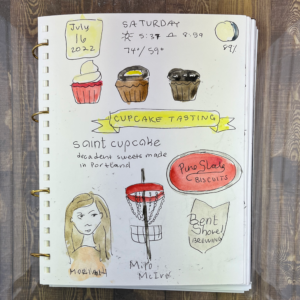 July
16
2022
SATURDAY
5:37 8:59
74°/59°
89%
CUPCAKE TASTING
saint cupcake
decadent sweets made
in Portland
Pine State
BISCUITS
Bent
Shovel
BREWING
MORGAN
Milo
McIver